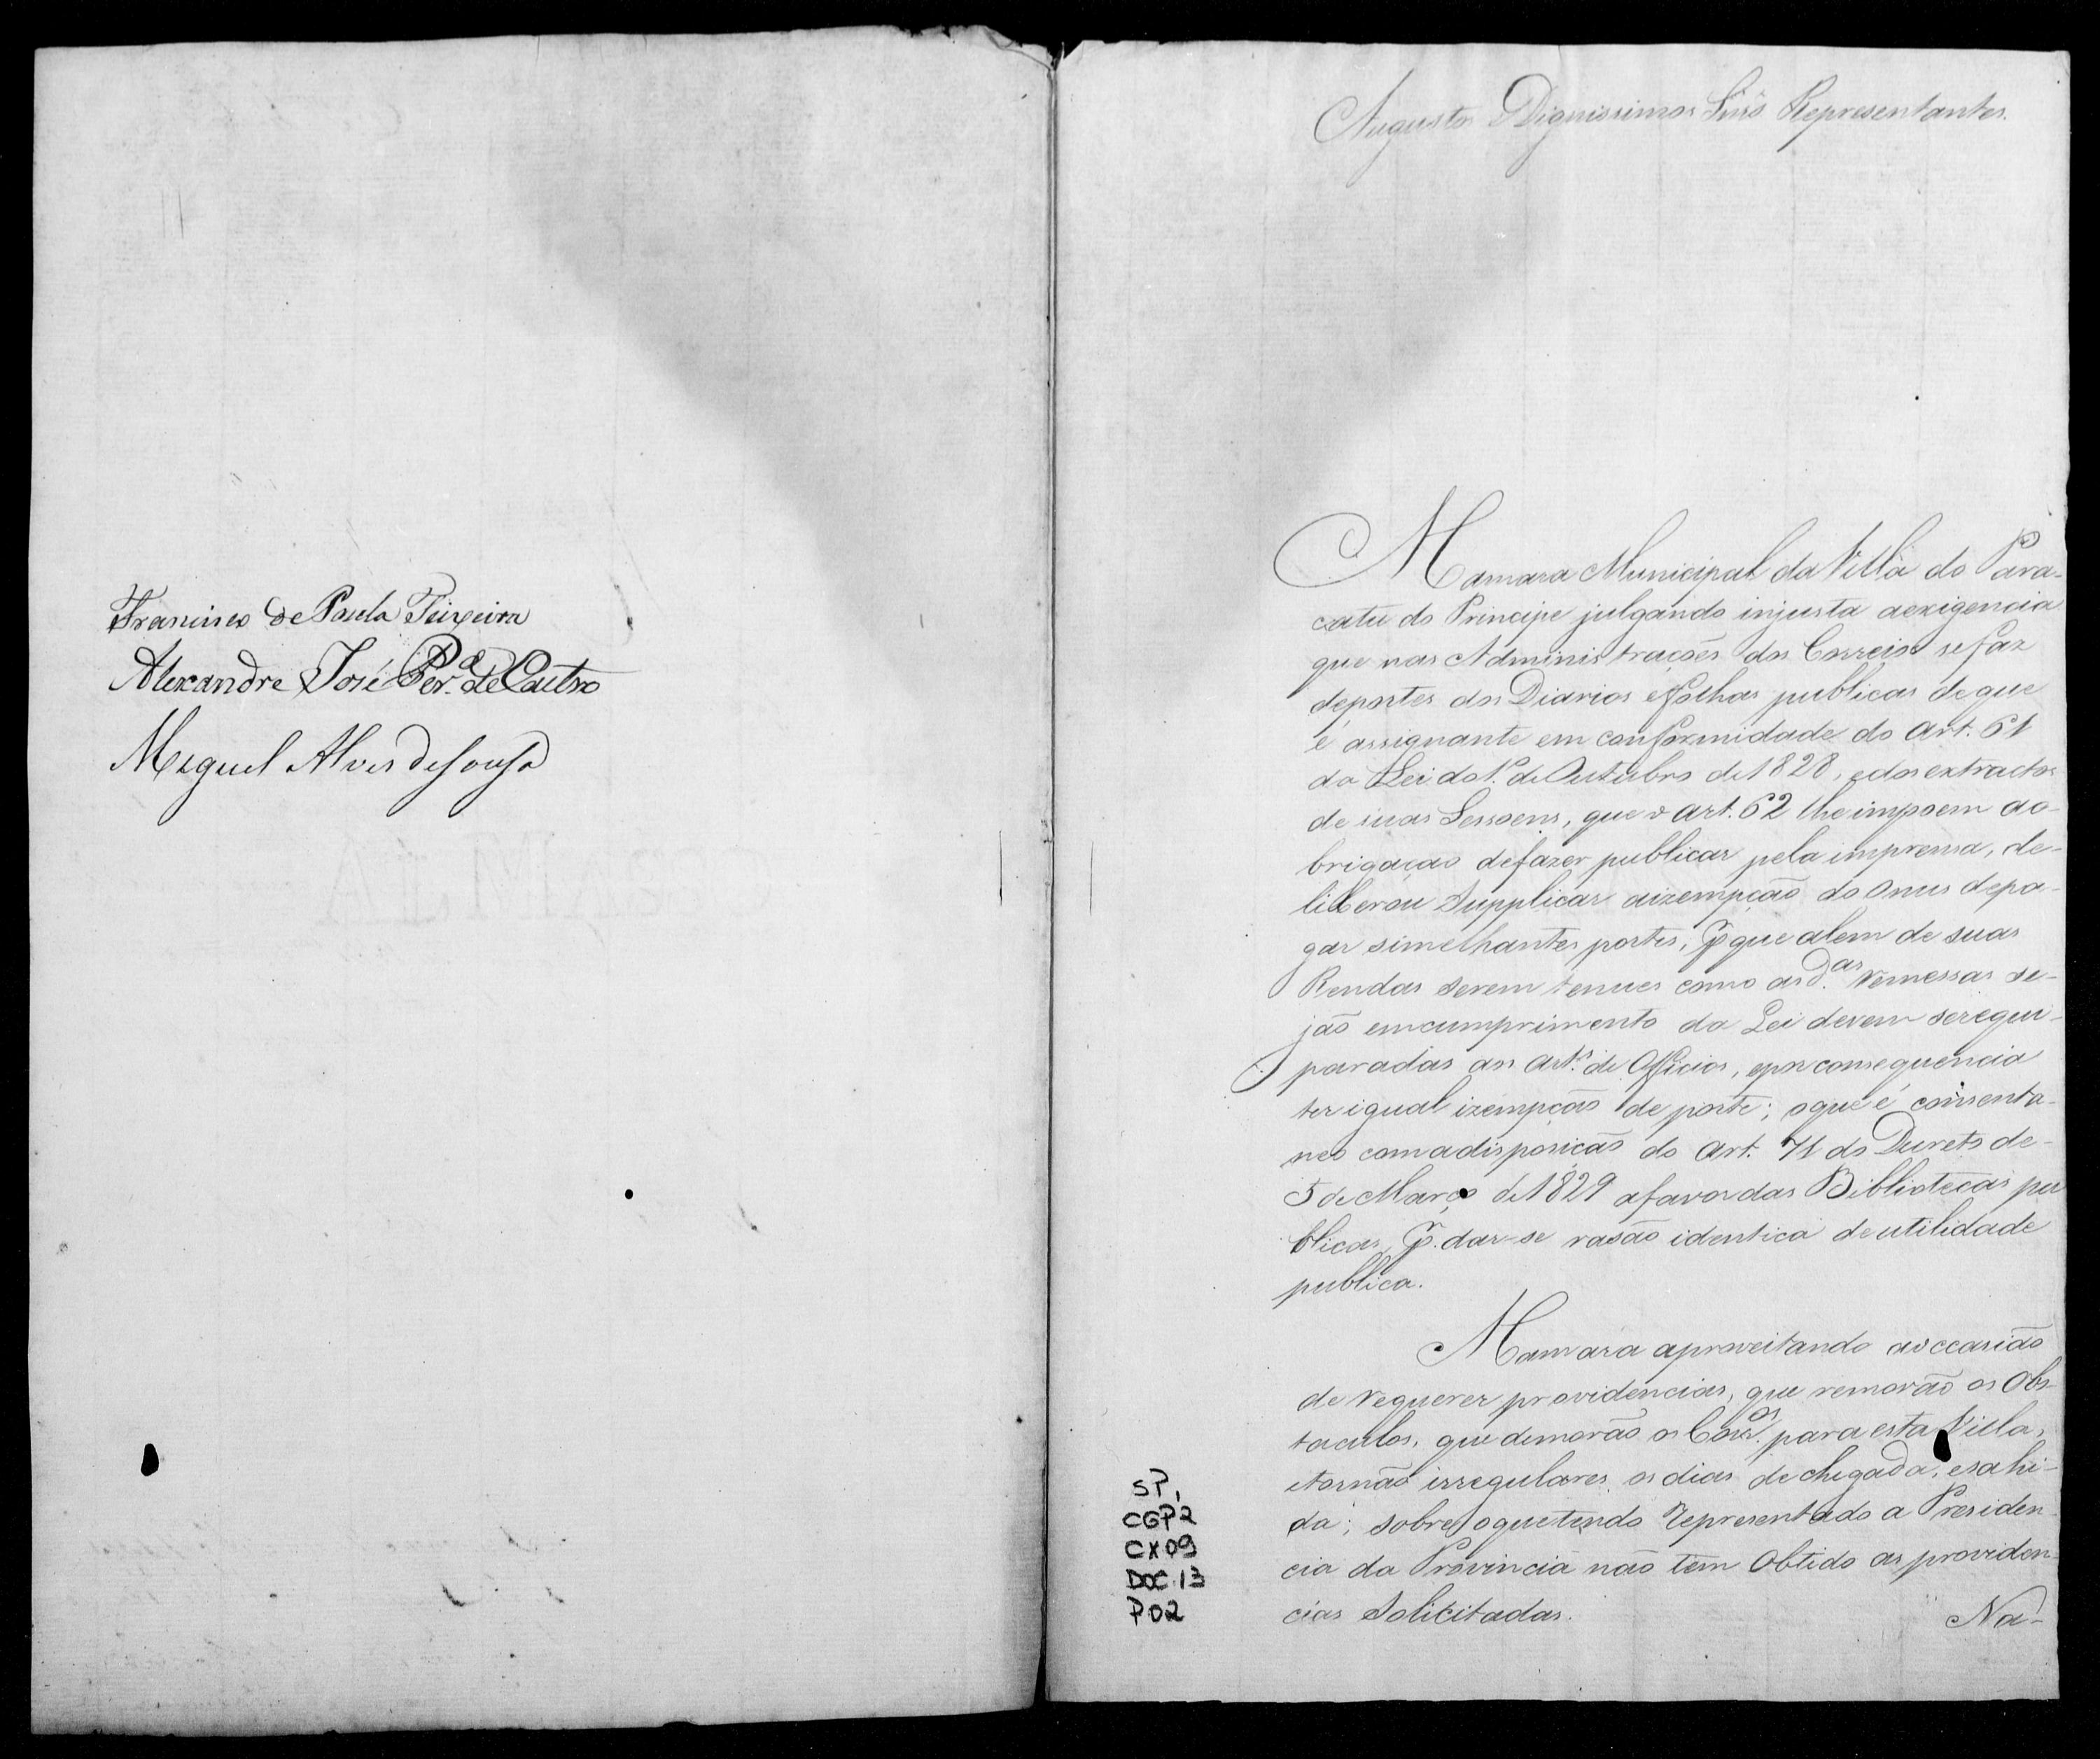 Francisco de Paula Teixeira
Alexandre José Per.ª de Castro
Miguel Alves de Sousa
Augustos Dignissimos Snr̃s Representantes.
A Camara Municipal da Villa do Para-
catú do Principe julgando injusta aexigencia
que nas Administraçoẽs dos Correios sefaz
deportes dos Diarios efolhas publicas deque
é assignante em conformidade do Art. 61
da Lei do 1.º de Outubro de 1828, edos extractos
de suas Sessoens, que o Art. 62 lhe impoem ao-
brigaçaõ defazer publicar pela imprensa, de-
liberou Supplicar aizempçaõ do Onus depa-
gar similhantes portes, p̃ que alem de suas
Rendas serem tenues como as d.as remessas se-
jaõ emcumprimento da Lei devem serequi-
paradas aos Art.os de Officios, epor consequencia
ter igual izempçaõ de porte; oque é consenta-
neo comadisposiçaõ do Art. 71 do Decreto de-
5 de Março de 1829 afavor das Bibliotecas pu
blicas, p̃. dar-se rasaõ identica de utilidade
publica.
A Camara aproveitando aoccasiaõ
de requerer providencias, que removaõ os Obs-
taculos, que demoraõ os Corr.os para esta Villa,
etornaõ irregulares os dias de chegada, esahi-
da; sobre oquetendo Representado a Presiden-
cia da Provincia naõ tem Obtido as providen-
cias Solicitadas.
Na-
SP,
CGP2
CX09
DOC.13
P.02